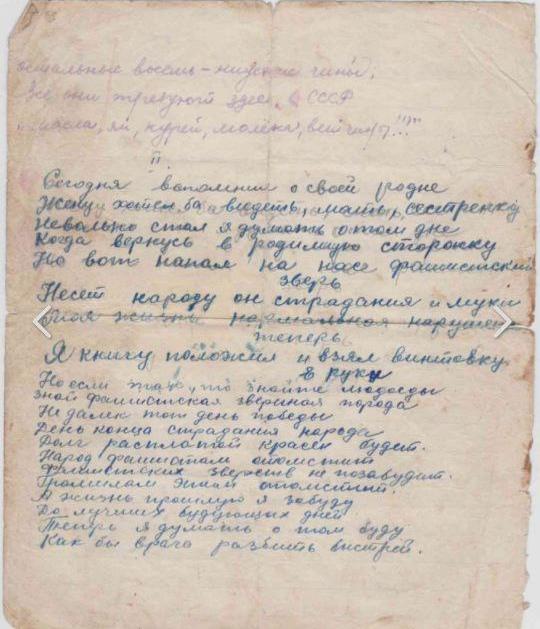 остальные восемь – низшие чины,
Все они требуют здесь, в СССР
масла, яй, курей, молока, ветчины!!"
II.
Сегодня вспомнил о своей родне
Жену хотел ба видеть, мать, сестренку
Невольно стал я думать о том дне
Когда вернусь в родимую сторонку
Но вот напал на нас фашистский
зверь
Несет народу он страдания и муки
Моя жизнь нормальная нарушен
теперь
Я книгу положил и взял винтовку
в руки
Но если так, то знайте людоеды
знай фашистская звериная порода
Не далек тот день победы
День конца страдания народа
Долг расплатой красен будет.
Народ фашистам отомстит
фашистских зверств не позабудит.
Громилам этим отомстит.
А жизнь прошлую я забуду
До лучших будующих дней
Теперь я думать о том буду
Как бы врага разбить быстрей.